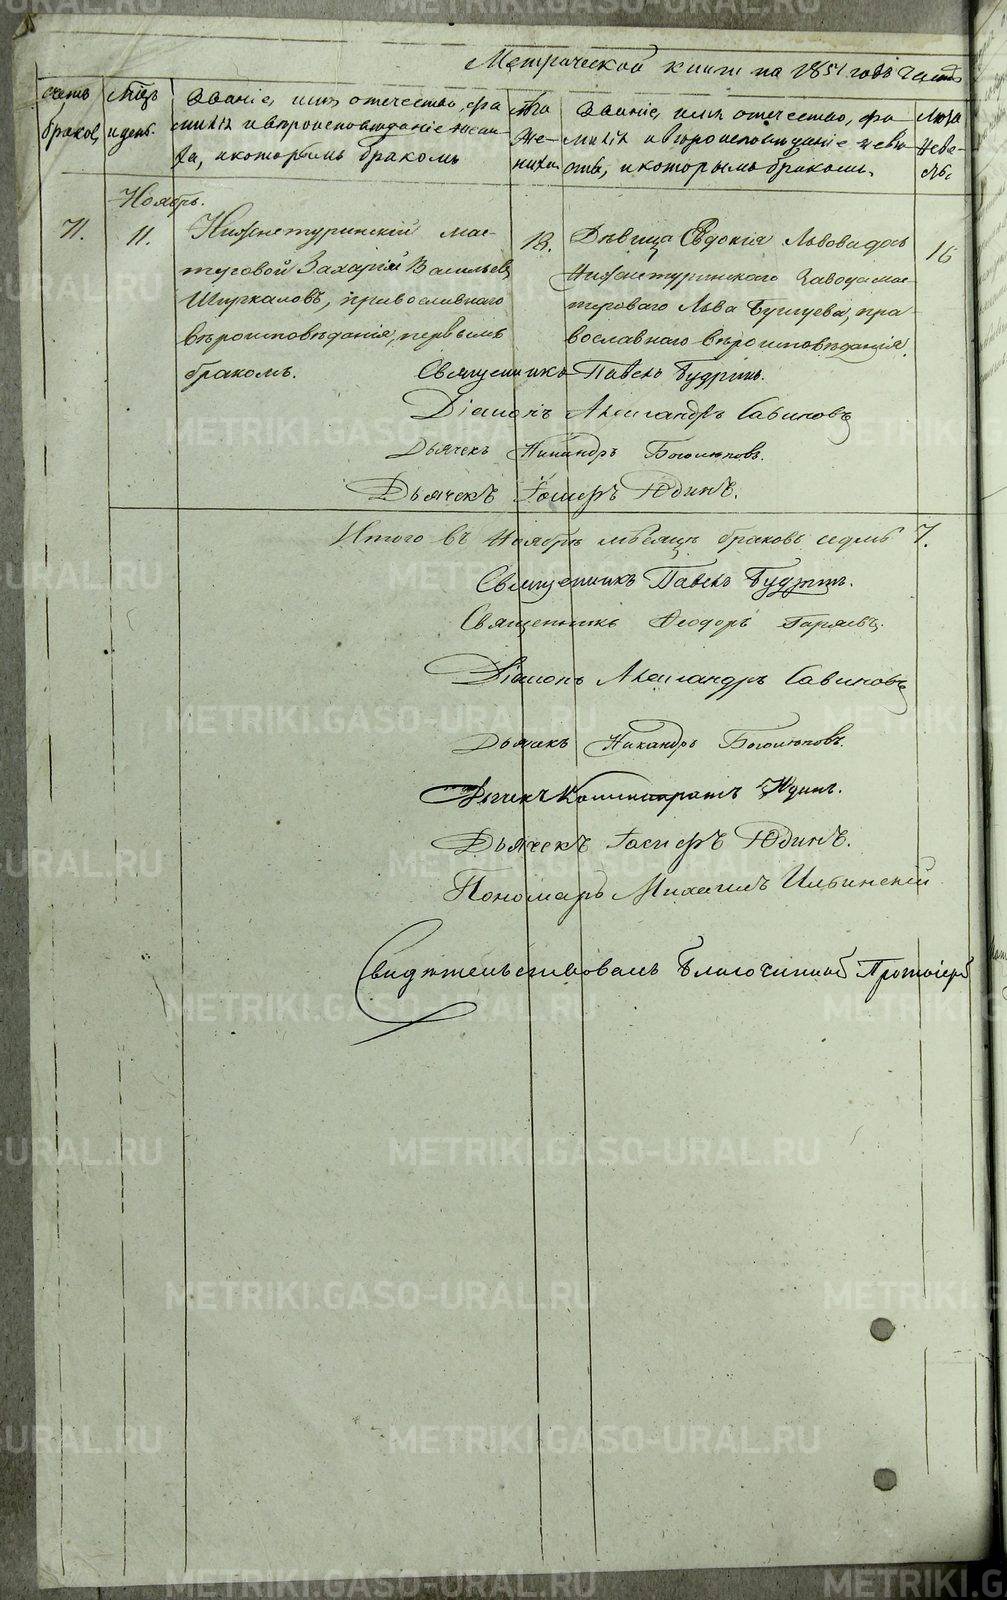 Метрической книги на 1851 годъ часть
счетъ браковъ
Мѣсяцъ и день
Званіе, имя, отечество, фамилія и вѣроисповѣданіе жениха, и которымъ бракомъ
Лѣта жениха
Званіе, имя отечество, фамилія и вѣроисповѣданіе невѣсты, и которымъ бракомъ.
Лѣта невесты
Ноябрь.
71.
11.
Нижнетуринскій мастеровой Захарій Васильевъ
православнаго
вѣроисповѣданія, первымъ
бракомъ.
18.
Дѣвица Евдокія Львова дочь
Нижнетуринскаго Завода мастероваго Льва православнаго вѣроисповѣданія.
16
Священникъ Павелъ Будринъ.
Діаконъ Александръ Савиновъ
Дьячекъ Никандръ Боголюповъ.
Дьячекъ Юдинъ.
Итого въ Ноябрѣ мѣсяцѣ браковъ седмь 7.
Священникъ Павелъ Будринъ.
Священникъ Феодоръ Горяевъ.
Діаконъ Александръ Савиновъ
Дьячекъ Никандръ Боголюповъ.
Дьячекъ Юдинъ.
Дьячекъ Юдинъ.
Пономарь Михаилъ Ильинскій
Свидѣтельствовалъ Благочинный Протоіерей
METRIKI.GASO-URAL.RU